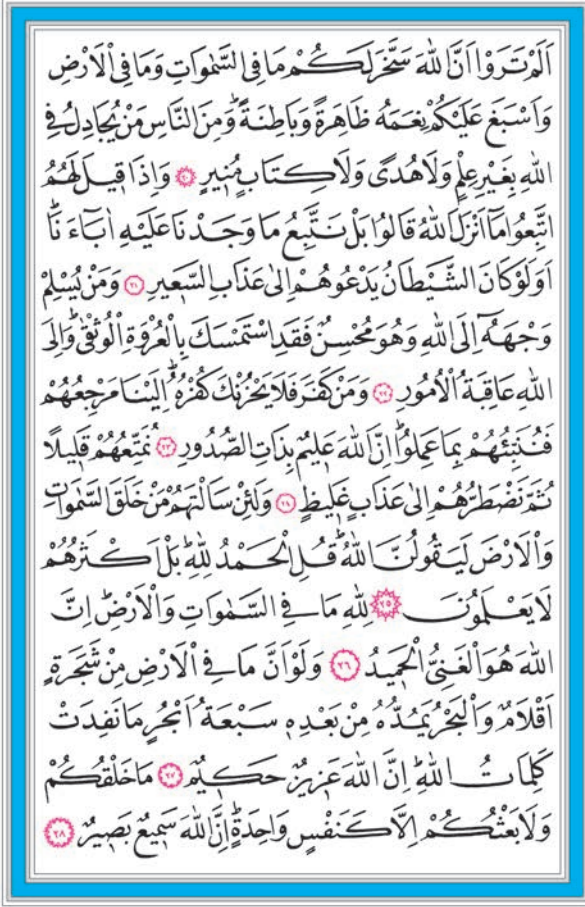 اَلَمْ تَرَوْا اَنَّ اللّٰهَ سَخَّرَ لَكُمْ مَا فِي السَّمٰوَاتِ وَمَا فِي الْاَرْضِ
وَاَسْبَغَ عَلَيْكُمْ نِعَمَهُ ظَاهِرَةً وَبَاطِنَةًۜ وَمِنَ النَّاسِ مَنْ يُجَادِلُ فِي
اللّٰهِ بِغَيْرِ عِلْمٍ وَلَا هُدًى وَلَا كِتَابٍ مُنِيرٍ ﴿٢٠﴾ وَاِذَا قِيلَ لَهُمُ
اتَّبِعُوا مَٓا اَنْزَلَ اللّٰهُ قَالُوا بَلْ نَتَّبِعُ مَا وَجَدْنَا عَلَيْهِ اٰبَٓاءَنَاۜ
اَوَلَوْ كَانَ الشَّيْطَانُ يَدْعُوهُمْ اِلٰى عَذَابِ السَّعِيرِ ﴿٢١﴾ وَمَنْ يُسْلِمْ
وَجْهَهُٓ اِلَى اللّٰهِ وَهُوَ مُحْسِنٌ فَقَدِ اسْتَمْسَكَ بِالْعُرْوَةِ الْوُثْقٰىۜ وَاِلَى
اللّٰهِ عَاقِبَةُ الْاُمُورِ ﴿٢٢﴾ وَمَنْ كَفَرَ فَلَا يَحْزُنْكَ كُفْرُهُۜ اِلَيْنَا مَرْجِعُهُمْ
فَنُنَبِّئُهُمْ بِمَا عَمِلُواۜ اِنَّ اللّٰهَ عَلِيمٌ بِذَاتِ الصُّدُورِ ﴿٢٣﴾ نُمَتِّعُهُمْ قَلِيلًا
ثُمَّ نَضْطَرُّهُمْ اِلٰى عَذَابٍ غَلِيظٍ ﴿٢٤﴾ وَلَئِنْ سَاَلْتَهُمْ مَنْ خَلَقَ السَّمٰوَاتِ
وَالْاَرْضَ لَيَقُولُنَّ اللّٰهُۜ قُلِ الْحَمْدُ لِلّٰهِۜ بَلْ اَكْثَرُهُمْ
لَا يَعْلَمُونَ ﴿٢٥﴾ لِلّٰهِ مَا فِي السَّمٰوَاتِ وَالْاَرْضِۜ اِنَّ
اللّٰهَ هُوَ الْغَنِيُّ الْحَمِيدُ ﴿٢٦﴾ وَلَوْ اَنَّ مَا فِي الْاَرْضِ مِنْ شَجَرَةٍ
اَقْلَامٌ وَالْبَحْرُ يَمُدُّهُ مِنْ بَعْدِهِ سَبْعَةُ اَبْحُرٍ مَا نَفِدَتْ
كَلِمَاتُ اللّٰهِۜ اِنَّ اللّٰهَ عَزِيزٌ حَكِيمٌ ﴿٢٧﴾ مَا خَلْقُكُمْ
وَلَا بَعْثُكُمْ اِلَّا كَنَفْسٍ وَاحِدَةٍۜ اِنَّ اللّٰهَ سَمِيعٌ بَصِيرٌ ﴿٢٨﴾